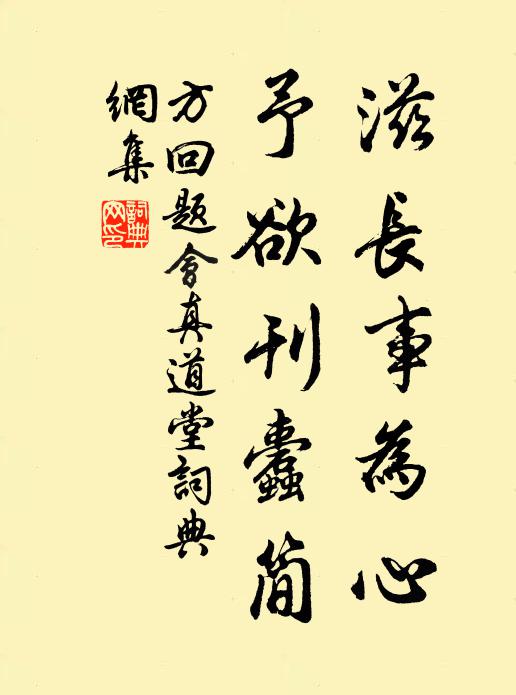 滋長事為心
予欲刊蠹簡
方回題會真道堂詞典
網集
詞典網印